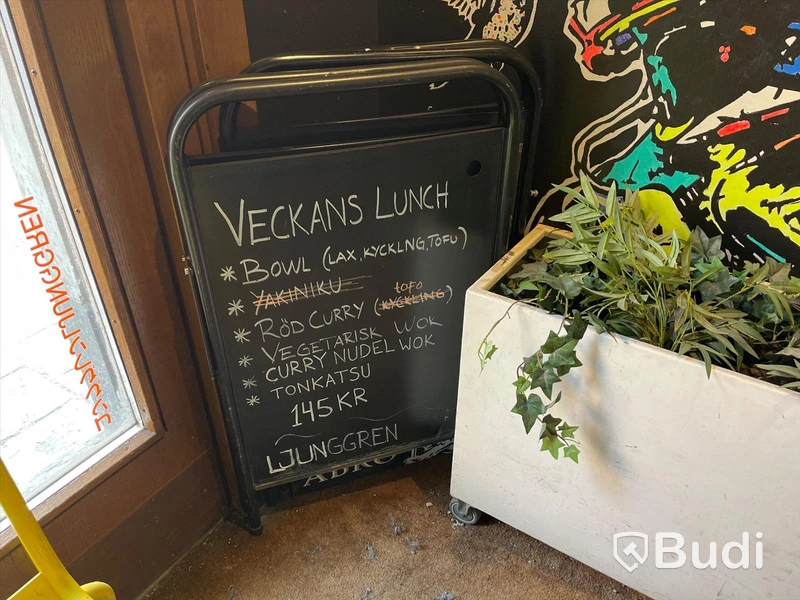 VECKANS LUNCH
* BOWL (LAX, KYCKLNG, TOFU)
* YAKINIKU
* RÖD CURRY (KYCKLING) tofo
* VEGETARISK WOK
* CURRY NUDEL WOK
* TONKATSU
145 KR
LJUNGGREN
LJUNGGREN
Budi